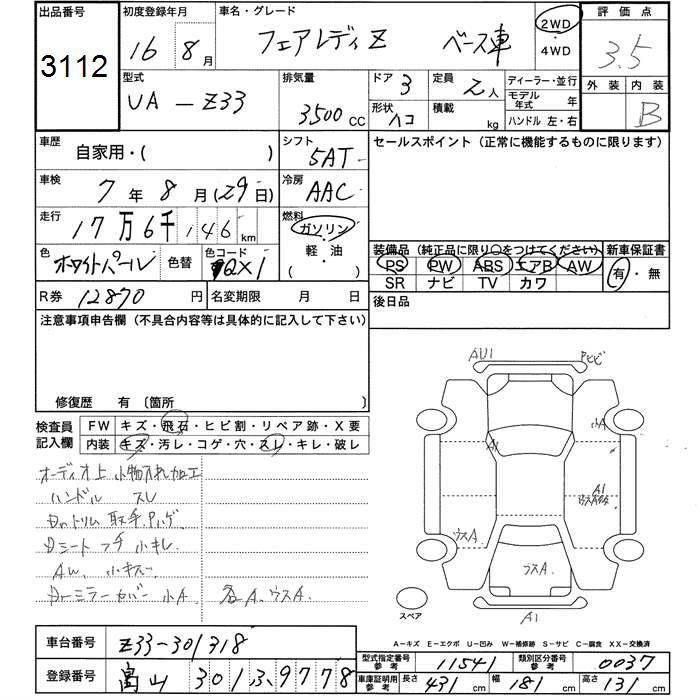 出品番号 初度登録年月 車名・グレード 評価点
3112 16年 8月 フェアレディZ ベース車 2WD・4WD 3.5
型式 排気量 ドア 定員 ディーラー・並行 外装 内装
UA-Z33 3500cc 3 2人 モデル年式 年 B
形状 ハコ 積載 kg ハンドル 左・右
車歴 自家用・( ) シフト 5AT セールスポイント (正常に機能するものに限ります)
車検 7年8月(29日) 冷房 AAC
走行 17万6千146km 燃料 ガソリン・軽油 ( )
色 ホワイトパール 色替 色コード QX1 装備品 (純正品に限り○をつけてください) 新車保証書
PS PW ABS エアB AW 有・無
SR ナビ TV カワ
R券 12870円 名変期限 月 日 後日品
注意事項申告欄 (不具合内容等は具体的に記入して下さい)
修復歴 有 〔箇所 〕
検査員記入欄 FW キズ・飛石・ヒビ割・リペア跡・X要
内装 キズ・汚レ・コゲ・穴・スレ・キレ・破レ
オーディオ上 小物入れ加工
ハンドル スレ
Dドアトリム 取手 ハゲ
Dシート フチ 小キレ
AW 小キズ
ドアーミラーカバー 小A 各A、ウスA
A1
小A
A1
A1
ウスA
ウスA
A1
スペア
A-キズ E-エクボ U-凹み W-補修跡 S-サビ C-腐食 XX-交換済
車台番号 Z33-301318
型式指定番号 参考 11541 類別区分番号 参考 0037
登録番号 富山 301 ふ 9778
車庫証明用 参考 長さ 431cm 幅 181cm 高さ 131cm